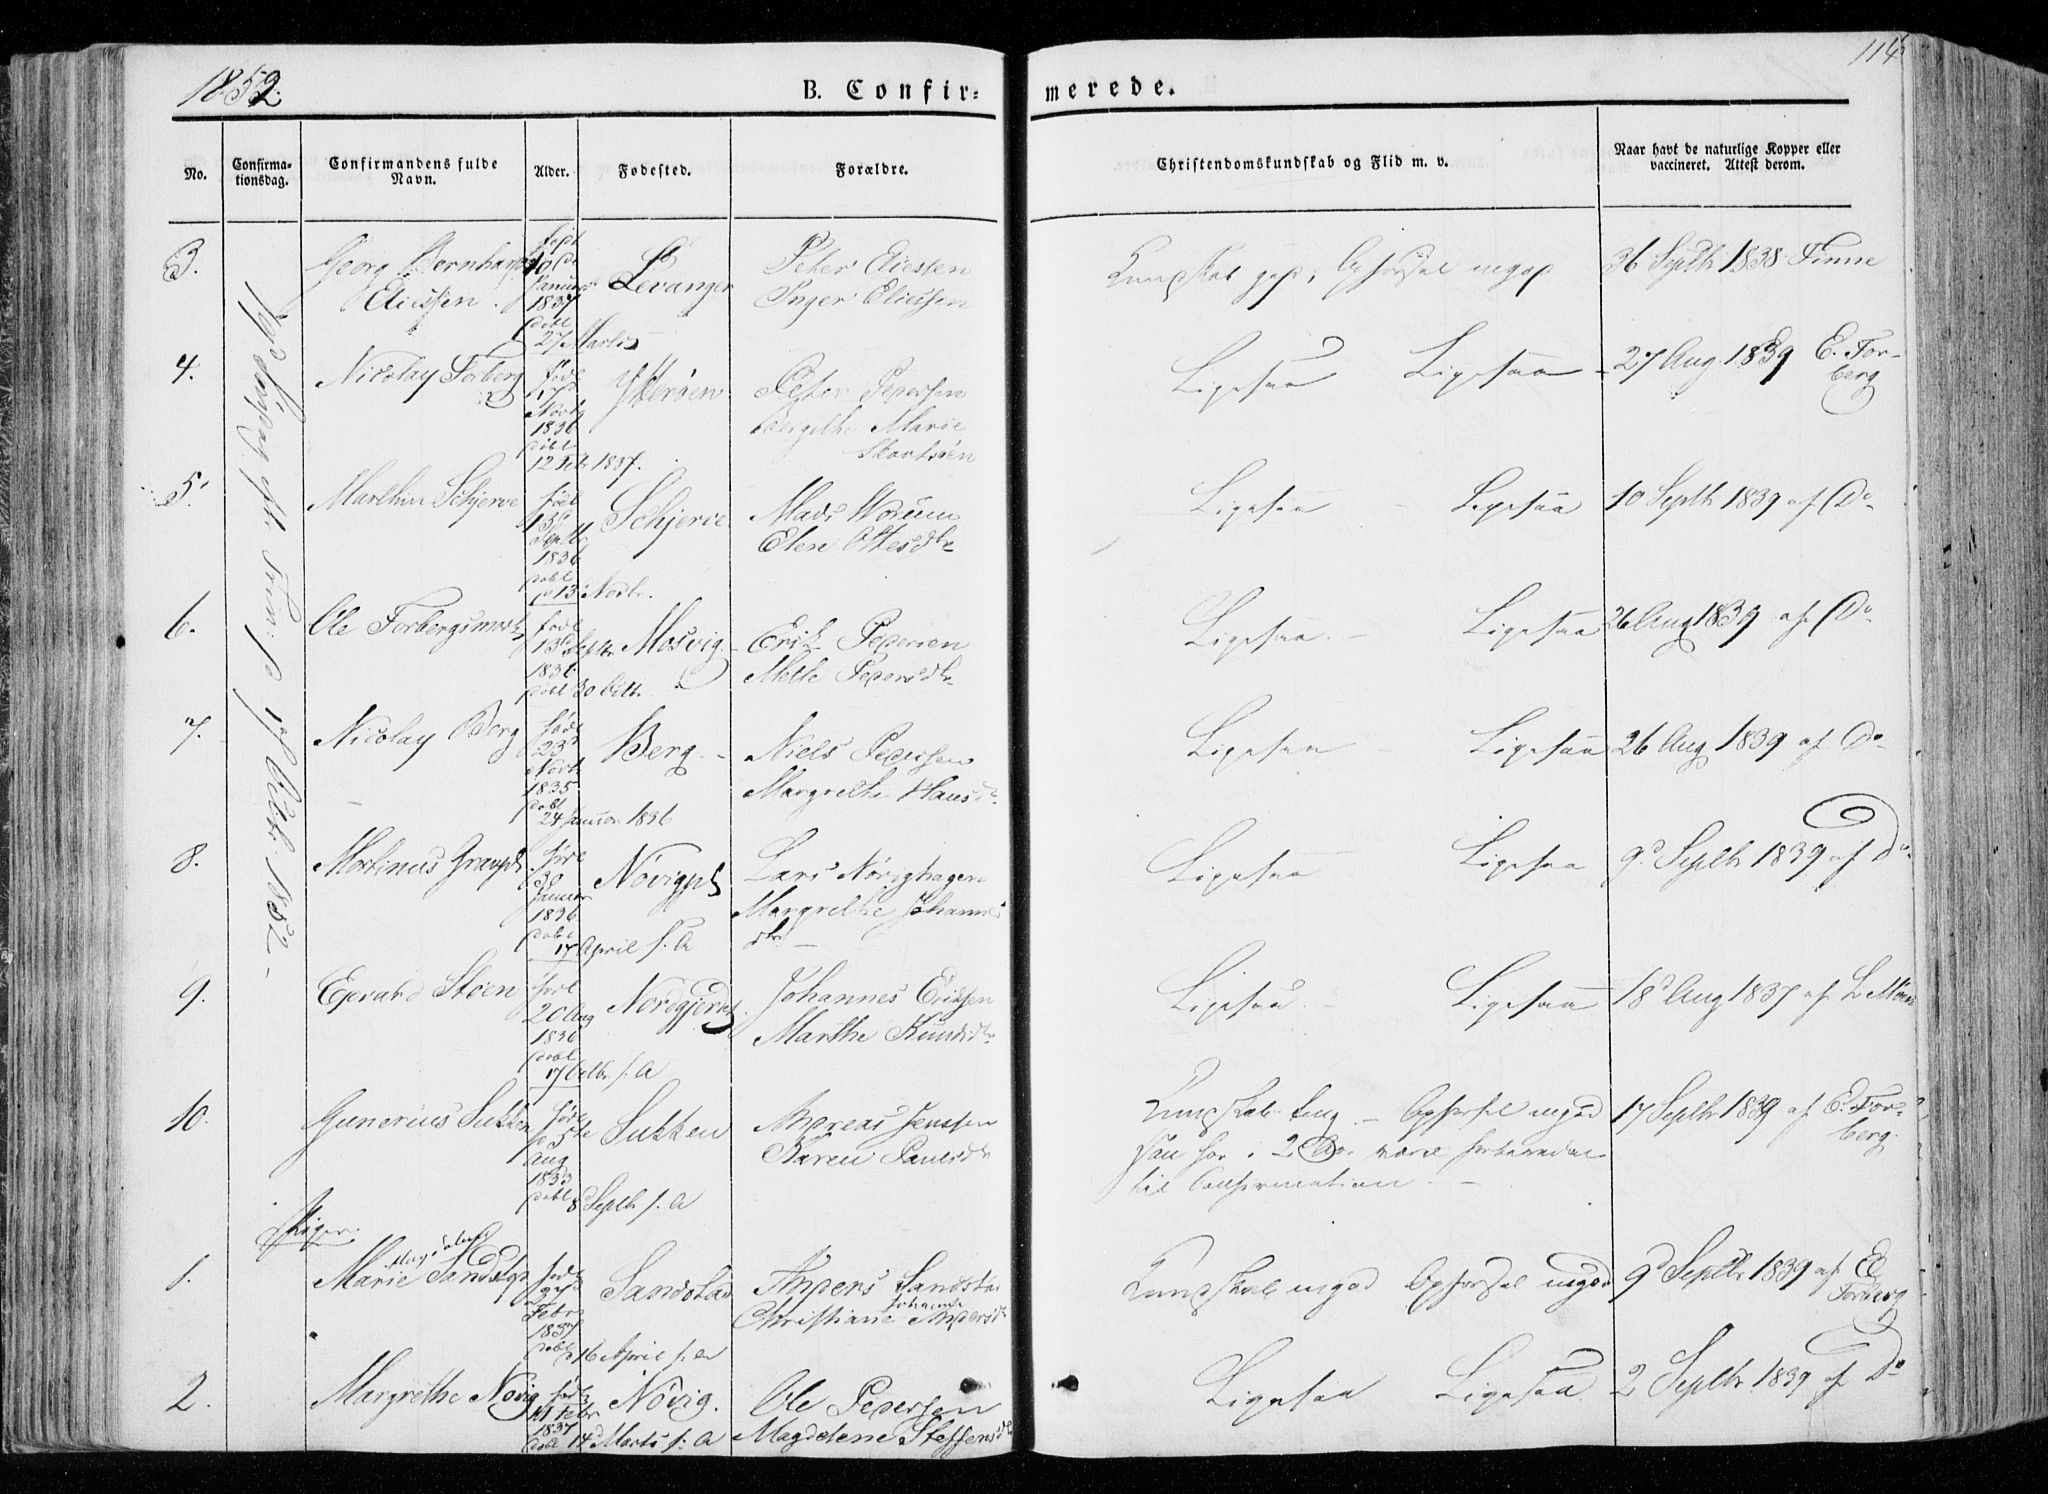 1852.
B. Confir=
merede.
114
No.
Confirma-
tionsdag.
Confirmandens fulde
Navn.
Alder.
Fødested.
Forældre.
Christendomskundskab og Flid m. v.
Naar havt de naturlige Kopper eller
vaccineret. Attest derom.
Søndag eft. Trin: 1852
3.
Georg Bernhard
Eliessen.
født
10de
Januar
1837
døbt
27 Marts
Levanger
Peter Eliesen
Inger Eliesen
Kundskab god, Opførsel mgod
36 Septbr 1838 Finne
4.
Nicolay Forberg
født
Novbr
1836
døbt
12 Feb 1837.
Ytterøen
Peter Pedersen
Bergithe Marie
Ligesaa Ligesaa
27 Aug 1839 E. For-
berg
5.
Marthin Schjerve
født
13d
Septbr
1836
døbt
d 13 Novbr.
Schjerve
Mads Worum
Elen Ottesdtr
Ligesaa - Ligesaa
10 Septbr 1839 af Do
6.
Ole Forbergsmark
født
13d Septbr
1836
døbt 30 Octbr
Mosvig.
Erik Pedersen
Mette Pedersdtr
Ligesaa. - Ligesaa
26 Aug 1839 af Do
7.
Nicolay Berg
født
23d
Novbr
1835
døbt
24 Januar 1836
Berg
Niels Pedersen
Margrethe Hansdr
Ligesaa Ligesaa
26 Aug 1839 af Do
8.
Mortinus
født
30
Januar
1836
døbt
17 April s. A
Nøvigpl
Lars Nøvighagen
Margrethe Johannes
dtr
Ligesaa Ligesaa
9d Septbr 1839 af Do
9.
Edvard Støen
født
20 Aug
1836
døbt
17 Octbr s. A
Nordgjerdet
Johannes Eriksen
Marthe Knudsdtr
Ligesaa - Ligesaa
18d Aug 1837 af
10.
Gunerius Sukken
født
d 5te
Aug
1833
døbt 8 Septbr s. A
Sukken
Andreas Jenssen
Karen Paulsdtr
Kundskab taug. - Opførsel mgod
han har i 2 Aar været forberedet
til Confirmation. -
17 Septbr 1839 af E. For-
berg.
Piger.
1.
Magdalena
Marie Sandstad
født
27d
Febr
1837
døbt
d 16 April s. A
Sandstad
Anders Sandstad
Johanna
Christiane Andersdr
Kundskab mgod Opførsel mgod
9d Septbr 1839 af E
Forberg
2.
Margrethe Nøvig
født
11 Febr
1837
døbt 14 Marts s. A
Nøvig.
Ole Pedersen
Magdelene Steffensdtr
Ligesaa Ligesaa
2 Septbr 1839 af Do